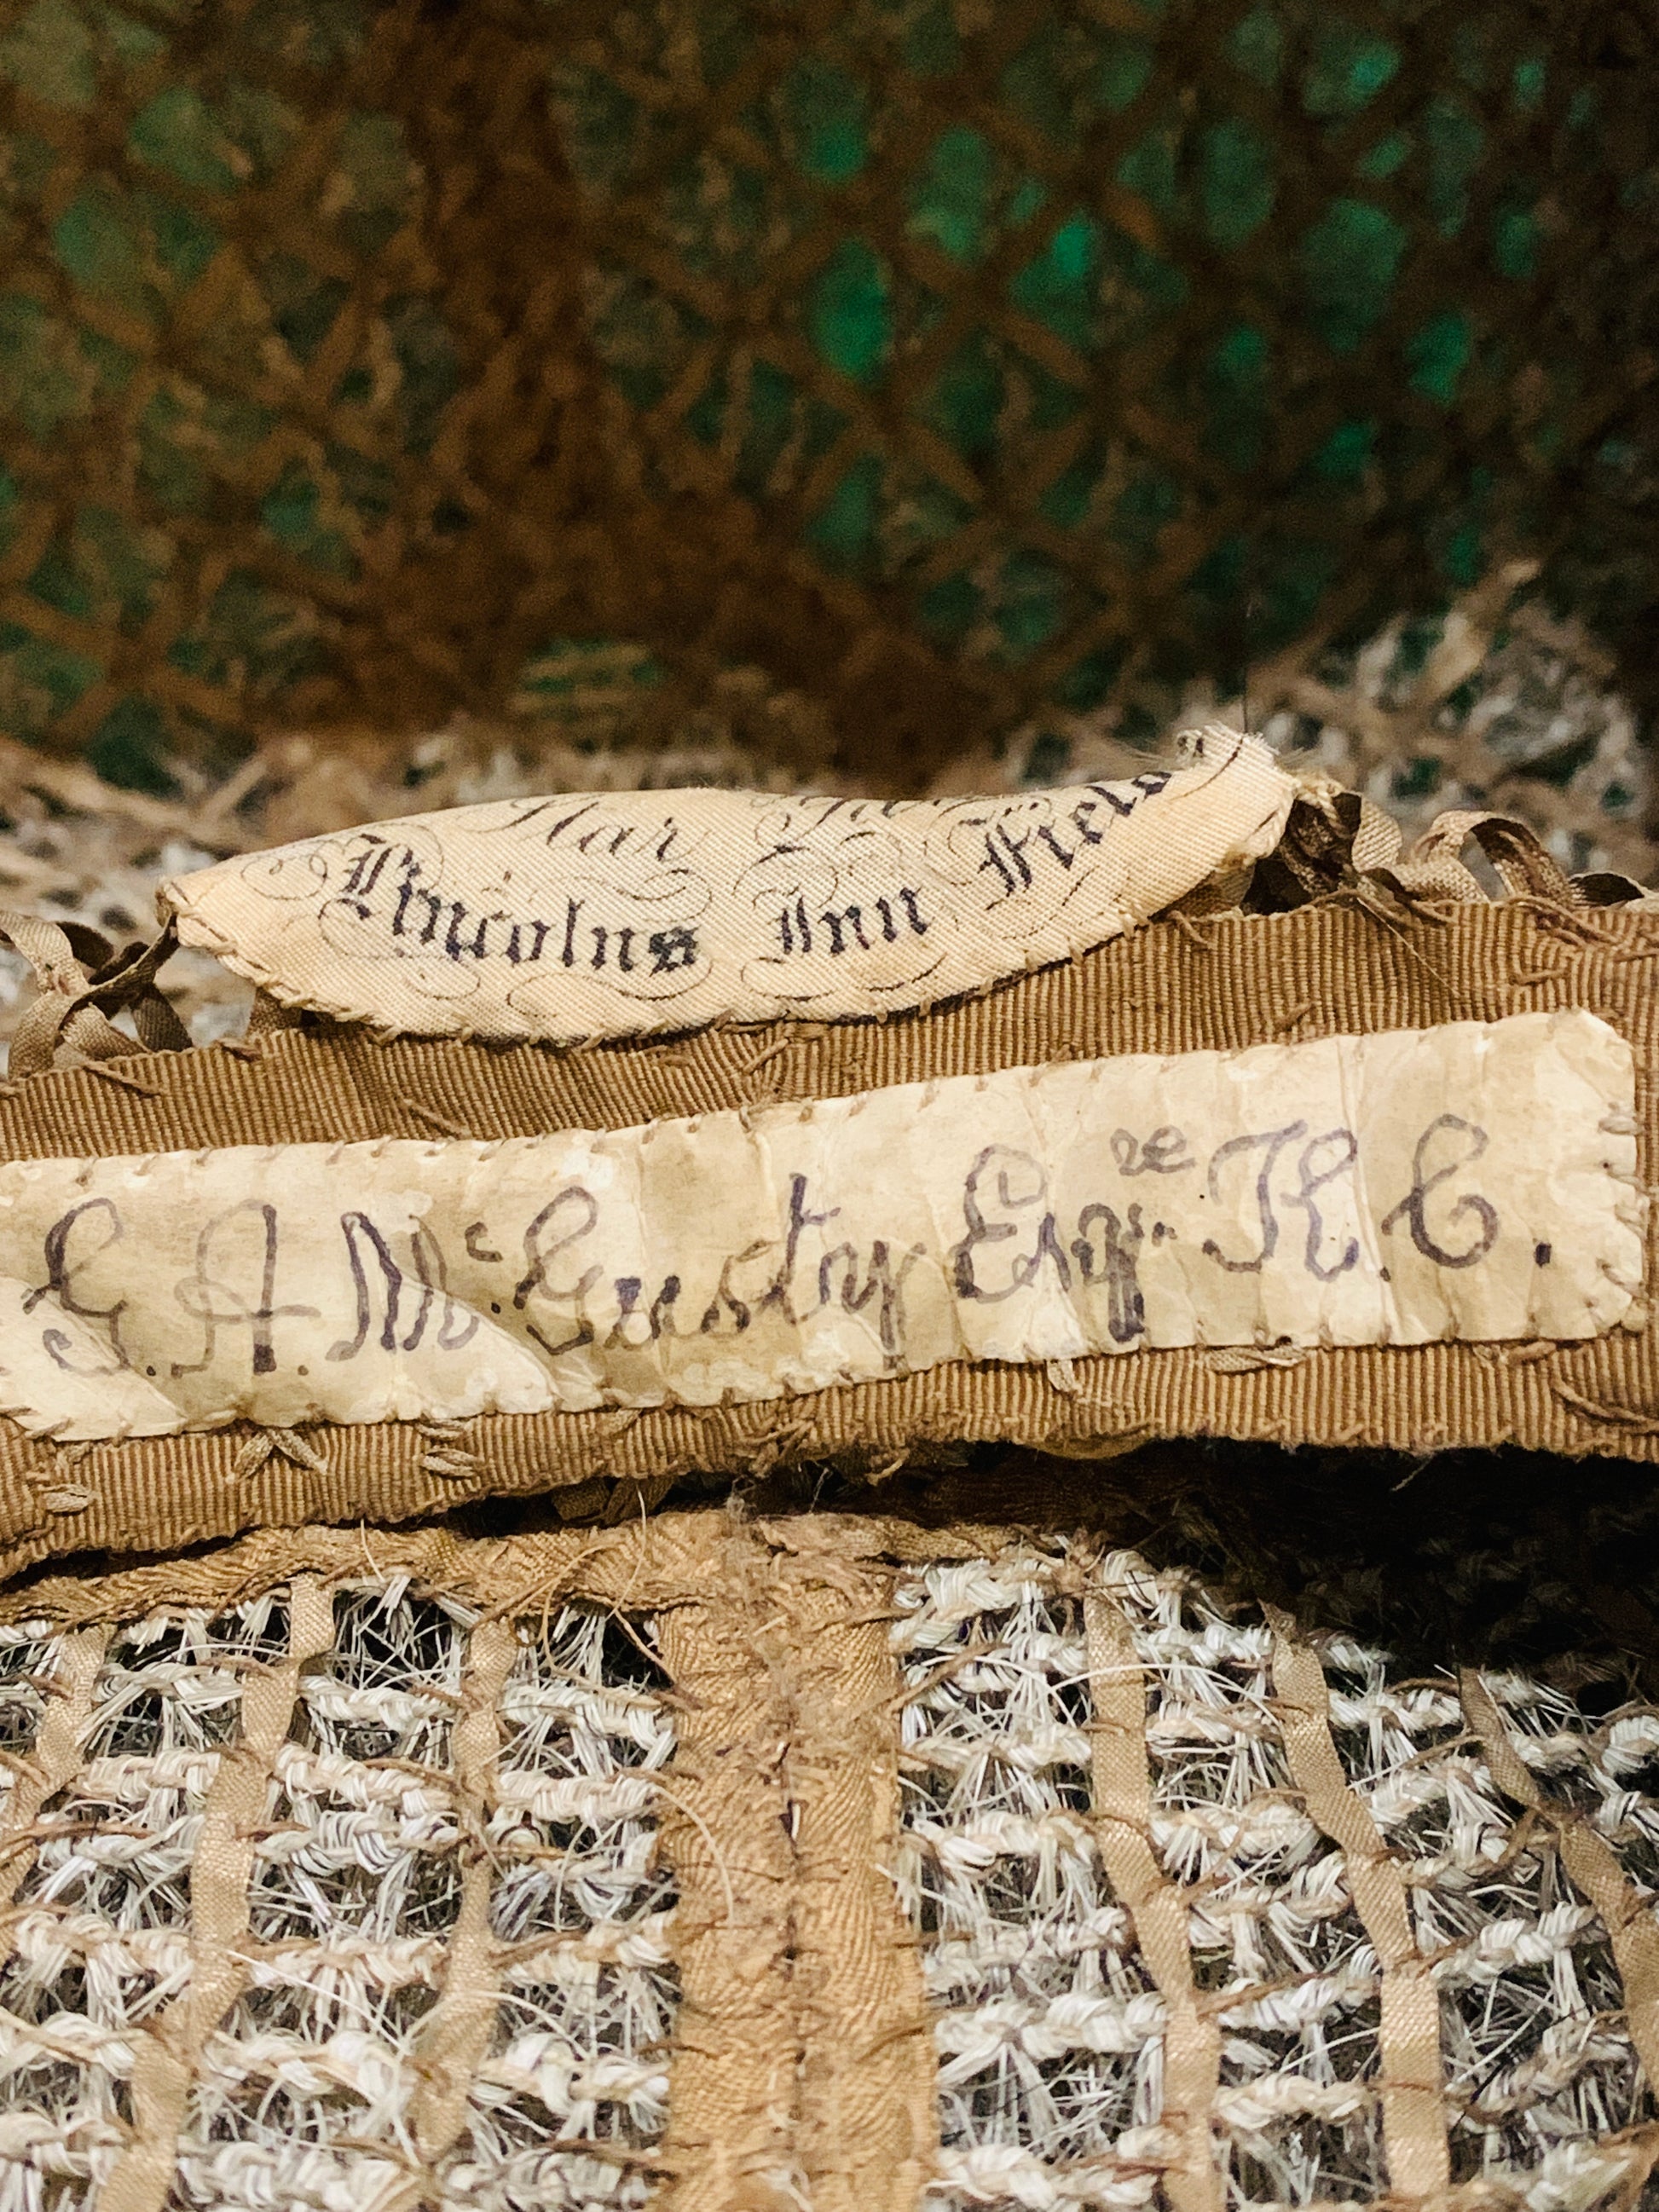 Lincolns Inn Field
G. A. Mc. Gusty Esqre. K. C.